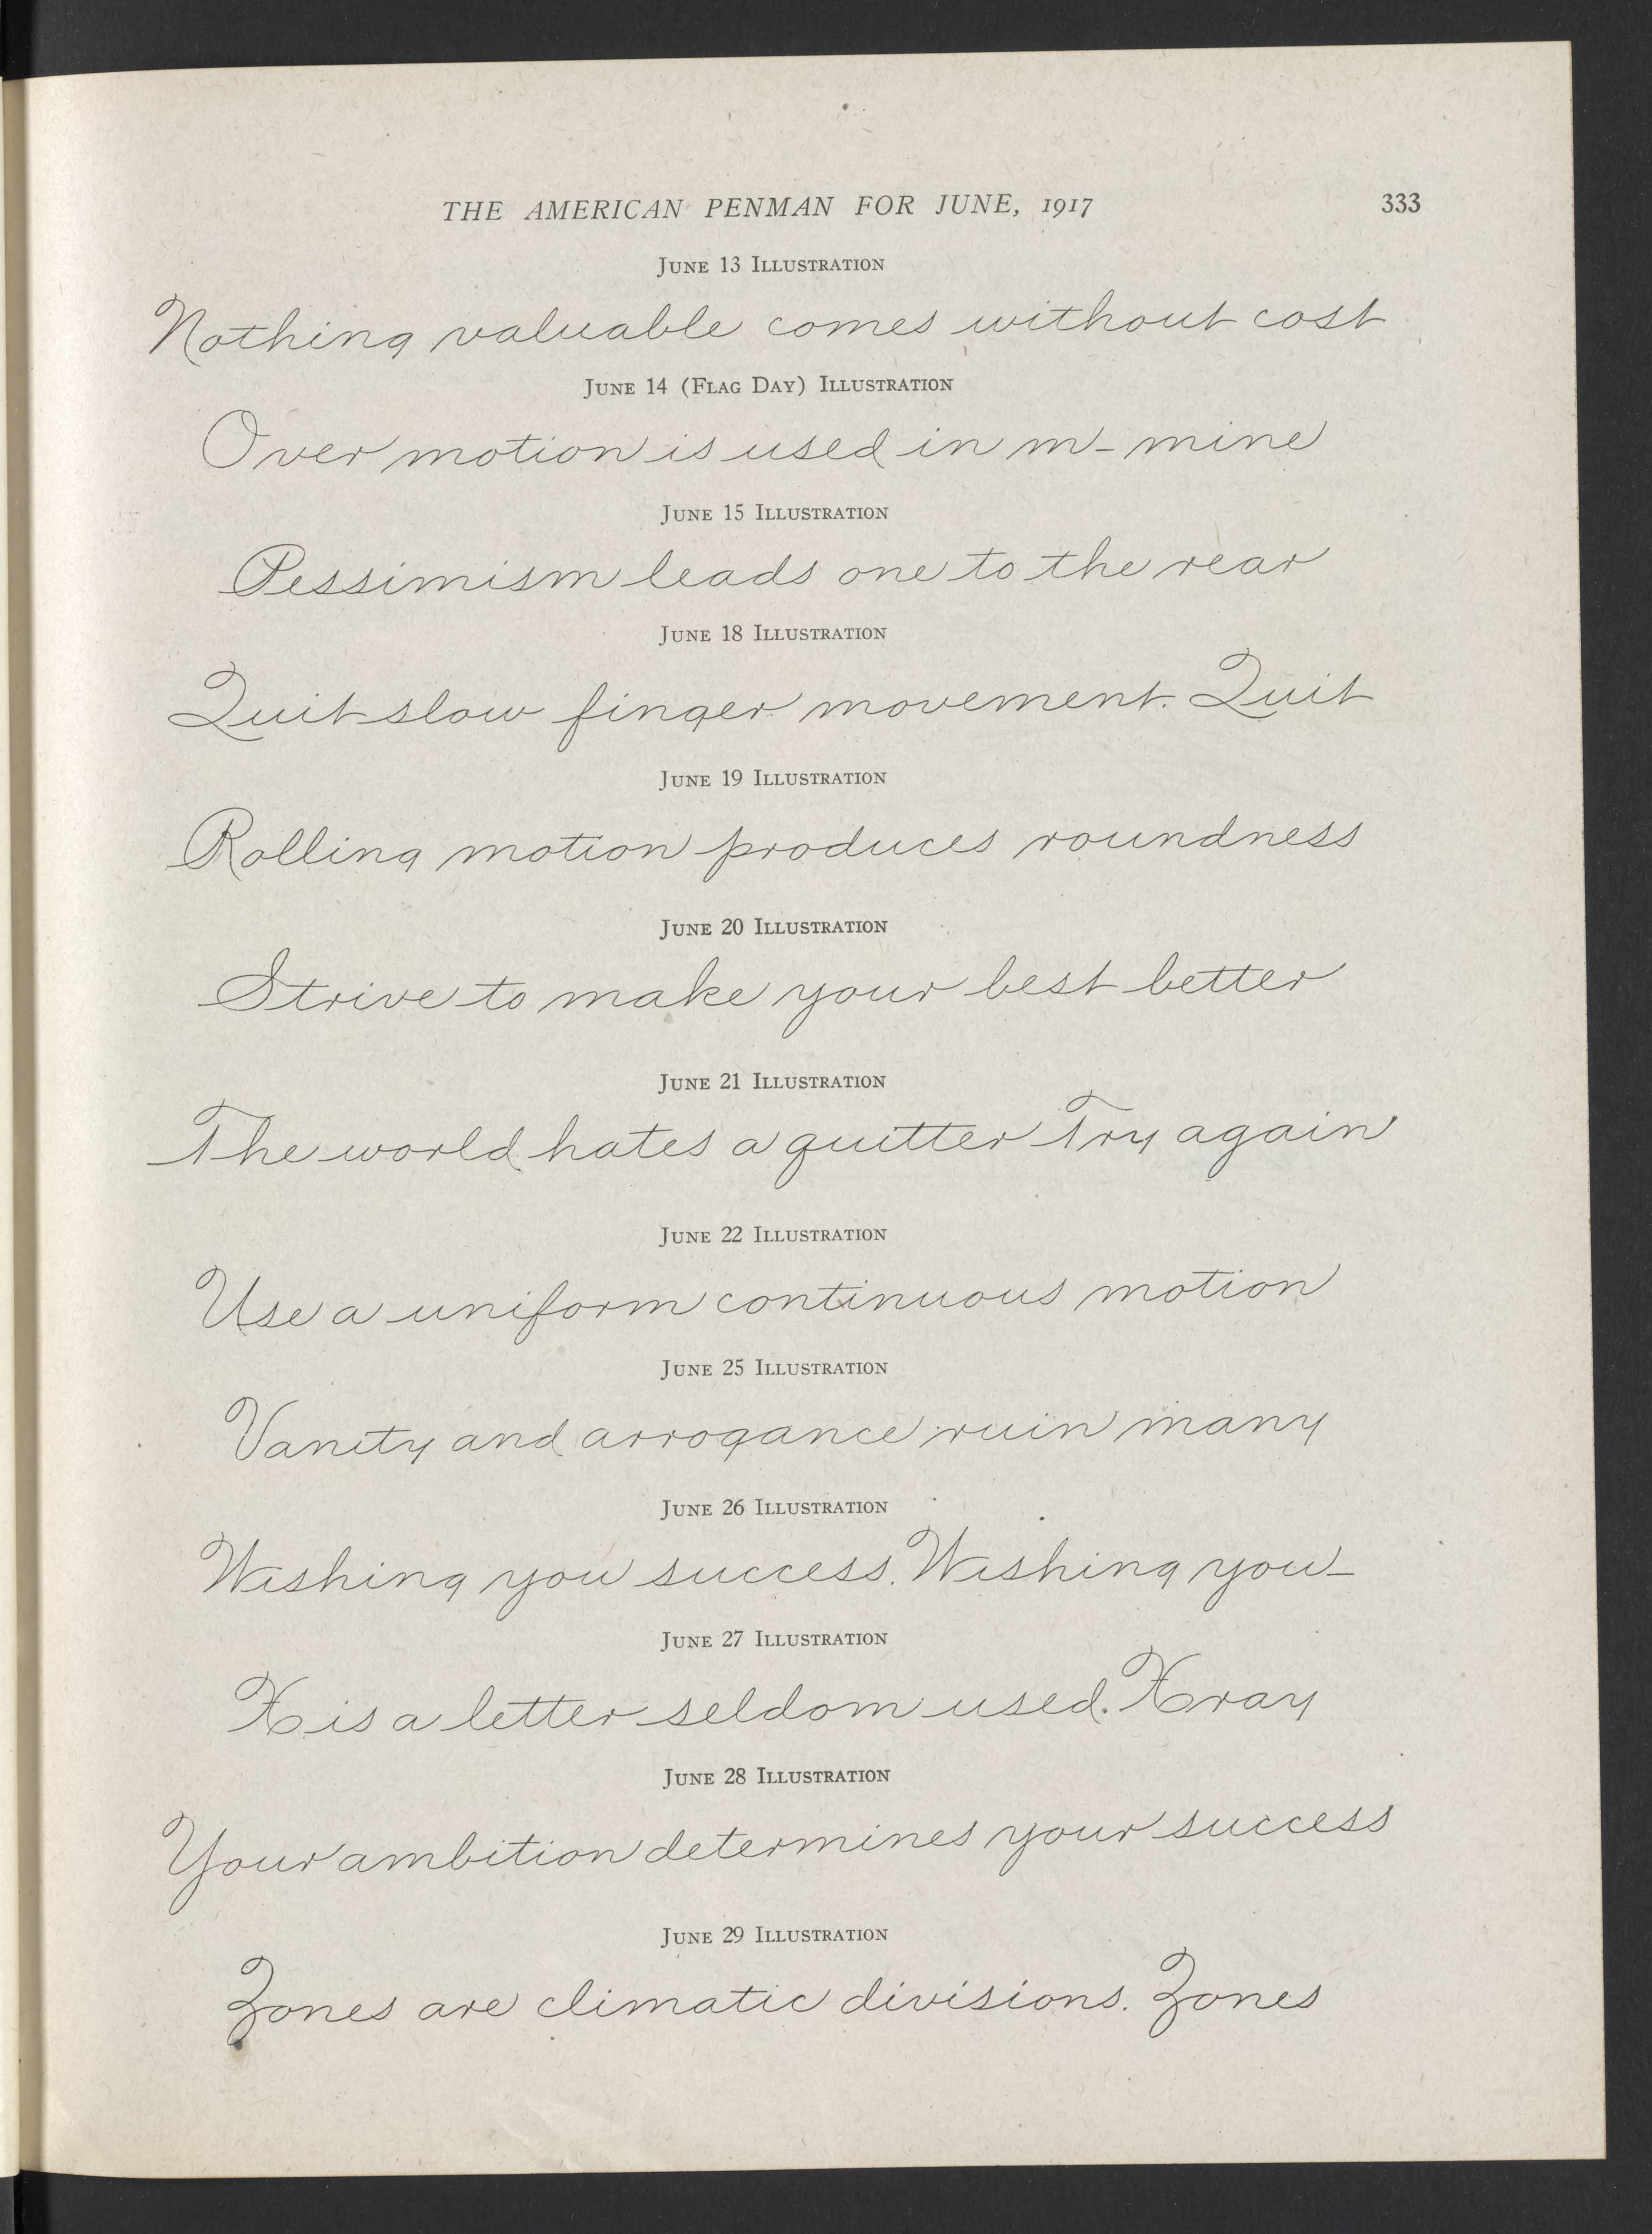 THE AMERICAN PENMAN FOR JUNE, 1917 333
JUNE 13 ILLUSTRATION
Nothing valuable comes without cost
JUNE 14 (FLAG DAY) ILLUSTRATION
Over motion is used in m - mine
JUNE 15 ILLUSTRATION
Pessimism leads one to the rear
JUNE 18 ILLUSTRATION
Quit slow finger movement. Quit
JUNE 19 ILLUSTRATION
Rolling motion produces roundness
JUNE 20 ILLUSTRATION
Strive to make your best better
JUNE 21 ILLUSTRATION
The world hates a quitter Try again
JUNE 22 ILLUSTRATION
Use a uniform continuous motion
JUNE 25 ILLUSTRATION
Vanity and arrogance ruin many
JUNE 26 ILLUSTRATION
Wishing you success. Wishing you-
JUNE 27 ILLUSTRATION
X is a letter seldom used. X ray
JUNE 28 ILLUSTRATION
Your ambition determines your success
JUNE 29 ILLUSTRATION
Zones are climatic divisions. Zones